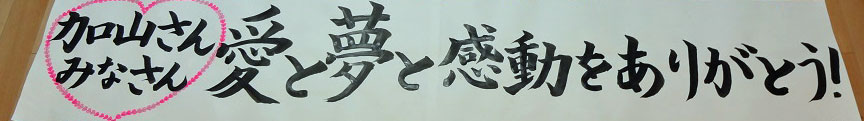 加山さん
みなさん
愛と夢と感動をありがとう!